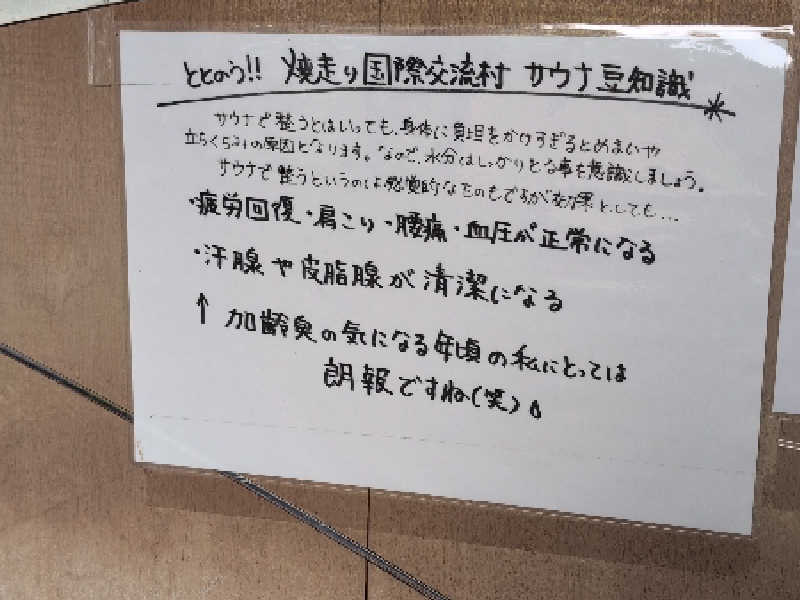 ととのう!! 焼走り国際交流村 サウナ豆知識
サウナで整うとはいっても、身体に負担をかけすぎるとめまいや
立ちくらみの原因となります。なので、水分はしっかりとる事を意識しましょう。
サウナで整うというのは感覚的なものですが効果としても...
・疲労回復・肩こり・腰痛・血圧が正常になる
・汗腺や皮脂腺が清潔になる
↑ 加齢臭の気になる年頃の私にとっては
朗報ですね(笑)。